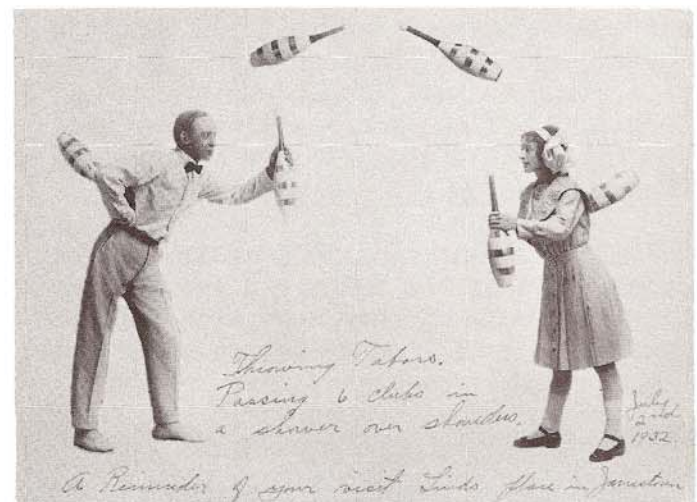 Throwing Tabors.
Passing 6 clubs in
a shower over shoulders.
July
2nd
1932
A Reminder of your visit Linds place in Jamestown